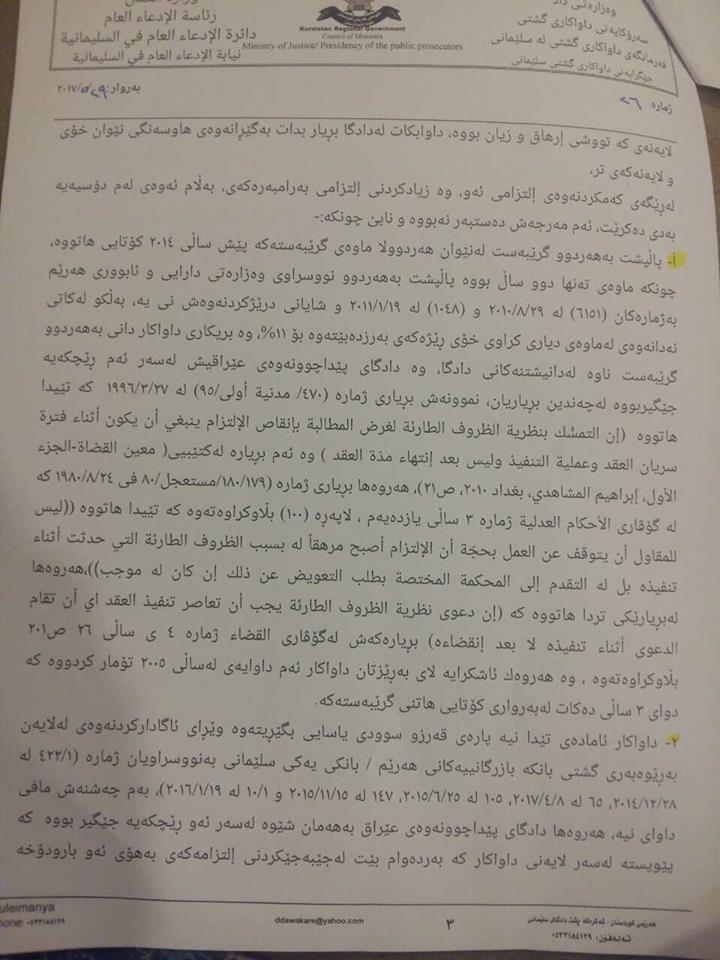 وەزارەتی داد
سەرۆکایەتی داواکاری گشتی
فەرمانگەی داواکاری گشتی لە سلێمانی
جێگرایەتی داواکاری گشتی سلێمانی
Kurdistan Regional Government
Council of Ministers
Ministry of Justice/ Presidency of the public prosecutors
رئاسة الإدعاء العام
دائرة الإدعاء العام في السليمانية
نيابة الإدعاء العام في السليمانية
ژمارە ٢٦
بەروار: ٢٠١٧/٥/٢٩
لایەنەی کە تووشی إرهاق و زیان بووە، داوابکات لەدادگا بڕیار بدات بەگێڕانەوەی هاوسەنگی نێوان خۆی
و لایەنەکەی تر،
لەڕێگەی کەمکردنەوەی إلتزامی ئەو، وە زیادکردنی إلتزامی بەرامبەرەکەی، بەڵام ئەوەی لەم دۆسیەیە
بەدی دەکرێت، ئەم مەرجەش دەستبەر نەبووە و نابێ چونکە:-
أ- پاڵپشت بەهەردوو گرێبەست لەنێوان هەردوولا ماوەی گرێبەستەکە پێش ساڵی ٢٠١٤ کۆتایی هاتووە،
چونکە ماوەی تەنها دوو ساڵ بووە پاڵپشت بەهەردوو نووسراوی وەزارەتی دارایی و ئابووری هەرێم
بەژمارەکان (٦١٥١) لە ٢٠١٠/٨/٢٩ و (١٠٤٨) لە ٢٠١١/١/١٩ و شایانی درێژکردنەوەش نی یە، بەڵکو لەکاتی
نەدانەوەی لەماوەی دیاری کراوی خۆی ڕێژەکەی بەرزدەبێتەوە بۆ ١١%، وە بریکاری داواکار دانی بەهەردوو
گرێبەست ناوە لەدانیشتنەکانی دادگا، وە دادگای پێداچوونەوەی عێراقیش لەسەر ئەم ڕێچکەیە
جێگیربووە لەچەندین بڕیاریان، نموونەش بڕیاری ژمارە (٤٧٠/ مدنیة أولی/٩٥) لە ١٩٩٦/٣/٢٧ کە تێیدا
هاتووە (إن التمسُّك بنظرية الظروف الطارئة لغرض المطالبة بإنقاص الإلتزام ينبغي أن يكون أثناء فترة
سريان العقد وعملية التنفيذ وليس بعد إنتهاء مدّة العقد ) وە ئەم بڕیارە لەکتێبی( معين القضاة-الجزء
الأول، إبراهيم المشاهدي، بغداد ٢٠١٠، ص٢١)، هەروەها بڕیاری ژمارە (١٨٠/١٧٩/مستعجل/٨٠ فی ١٩٨٠/٨/٢٤ کە
لە گۆڤاری الأحكام العدلية ژمارە ٣ ساڵی یازدەیەم ، لاپەڕە (١٠٠) بڵاوکراوەتەوە کە تێیدا هاتووە ((ليس
للمقاول أن يتوقف عن العمل بحجّة أن الإلتزام أصبح مرهقاً له بسبب الظروف الطارئة التي حدثت أثناء
تنفيذه بل له التقدم إلى المحكمة المختصة بطلب التعويض عن ذلك إن كان له موجب))،هەروەها
لەبڕیارێکی تردا هاتووە کە (إن دعوى نظرية الظروف الطارئة يجب أن تعاصر تنفيذ العقد اي أن تقام
الدعوى أثناء تنفيذه لا بعد إنقضاءه) بڕیارەکەش لەگۆڤاری القضاء ژمارە ٤ ی ساڵی ٢٦ ص٢٠١
بڵاوکراوەتەوە ، وە هەروەك ئاشکرایە لای بەڕێزتان داواکار ئەم داوایەی لەساڵی ٢٠٠٥ تۆمار کردووە کە
دوای ٣ ساڵی دەکات لەبەرواری کۆتایی هاتنی گرێبەستەکە.
٢- داواکار ئامادەی تێدا نیە پارەی قەرزو سوودی یاسایی بگێڕیتەوە وێڕای ئاگادارکردنەوەی لەلایەن
بەڕێوەبەری گشتی بانکە بازرگانییەکانی هەرێم / بانکی یەکی سلێمانی بەنووسراویان ژمارە (٤٢٢/١ لە
٢٠١٤/١٢/٢٨، ٦٥ لە ٢٠١٧/٤/٨، ١٠٥ لە ٢٠١٥/٦/٢٥، ١٤٧ لە ٢٠١٥/١١/١٥ و ١٠/١ لە ٢٠١٦/١/١٩)، بەم چەشنەش مافی
داوای نیە، هەروەها دادگای پێداچوونەوەی عێراق بەهەمان شێوە لەسەر ئەو ڕێچکەیە جێگیر بووە کە
پێویستە لەسەر لایەنی داواکار کە بەردەوام بێت لەجێبەجێکردنی إلتزامەکەی بەهۆی ئەو بارودۆخە
هەرێمی کوردستان - شەڕەکە پشت دادگای سلێمانی
تەلەفۆن: ٠٥٣٣١٨٤١٢٩
٣
ddawakare@yahoo.com
uleimanya
hone ٠٥٣٣١٨٤١٢٩